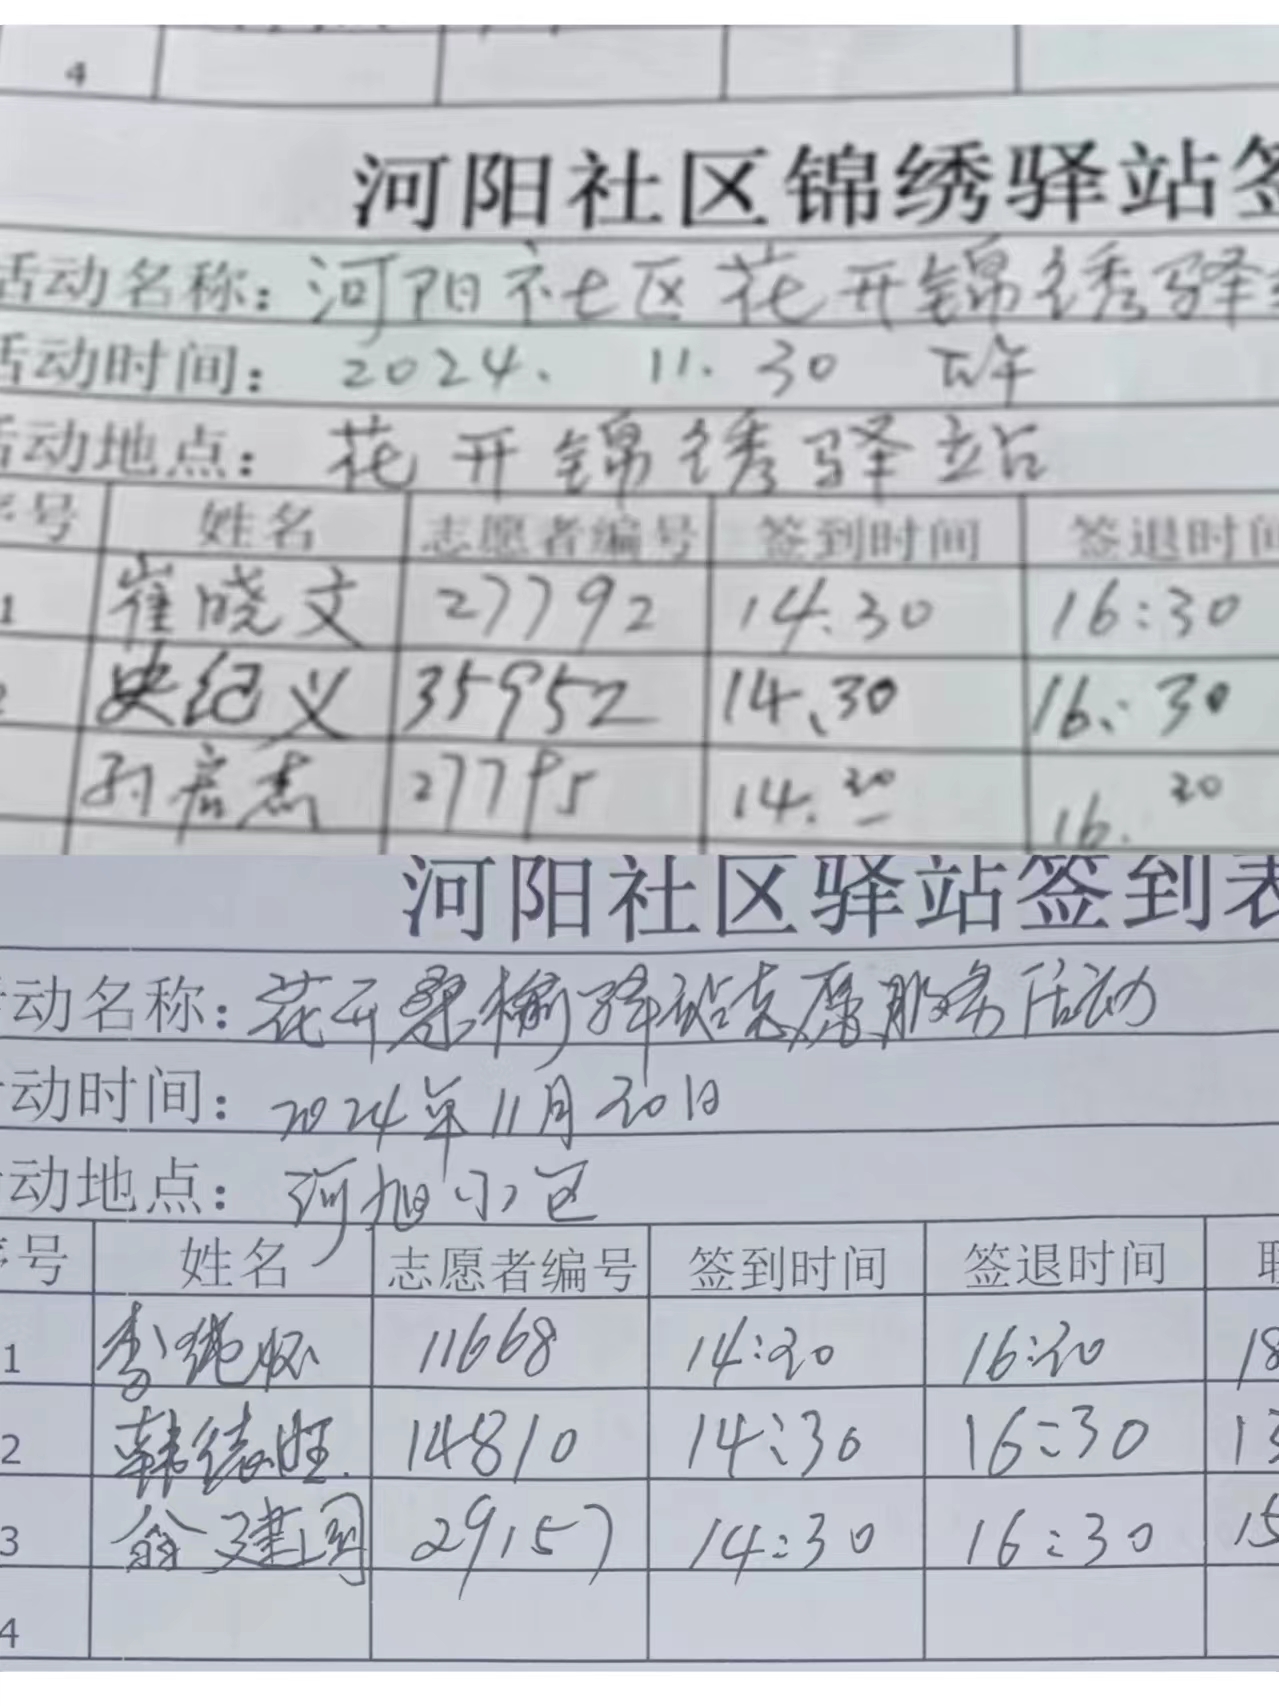 4
河阳社区锦绣驿站签
活动名称：河阳社区花开锦绣驿
活动时间：2024. 11. 30 下午
活动地点：花开锦绣驿站
序号 姓名 志愿者编号 签到时间 签退时间
1 崔晓文 27792 14.30 16:30
2 史纪义 35952 14.30 16:30
孙彦杰 27795 14.30 16.30
河阳社区驿站签到表
活动名称：花开桑榆驿站志愿服务活动
动时间：2024年11月30日
动地点：河旭小区
序号 姓名 志愿者编号 签到时间 签退时间 联
1 李纯怀 11668 14:30 16:30 18
2 韩德胜 14810 14:30 16:30 13
3 翁建国 29157 14:30 16:30 15
4